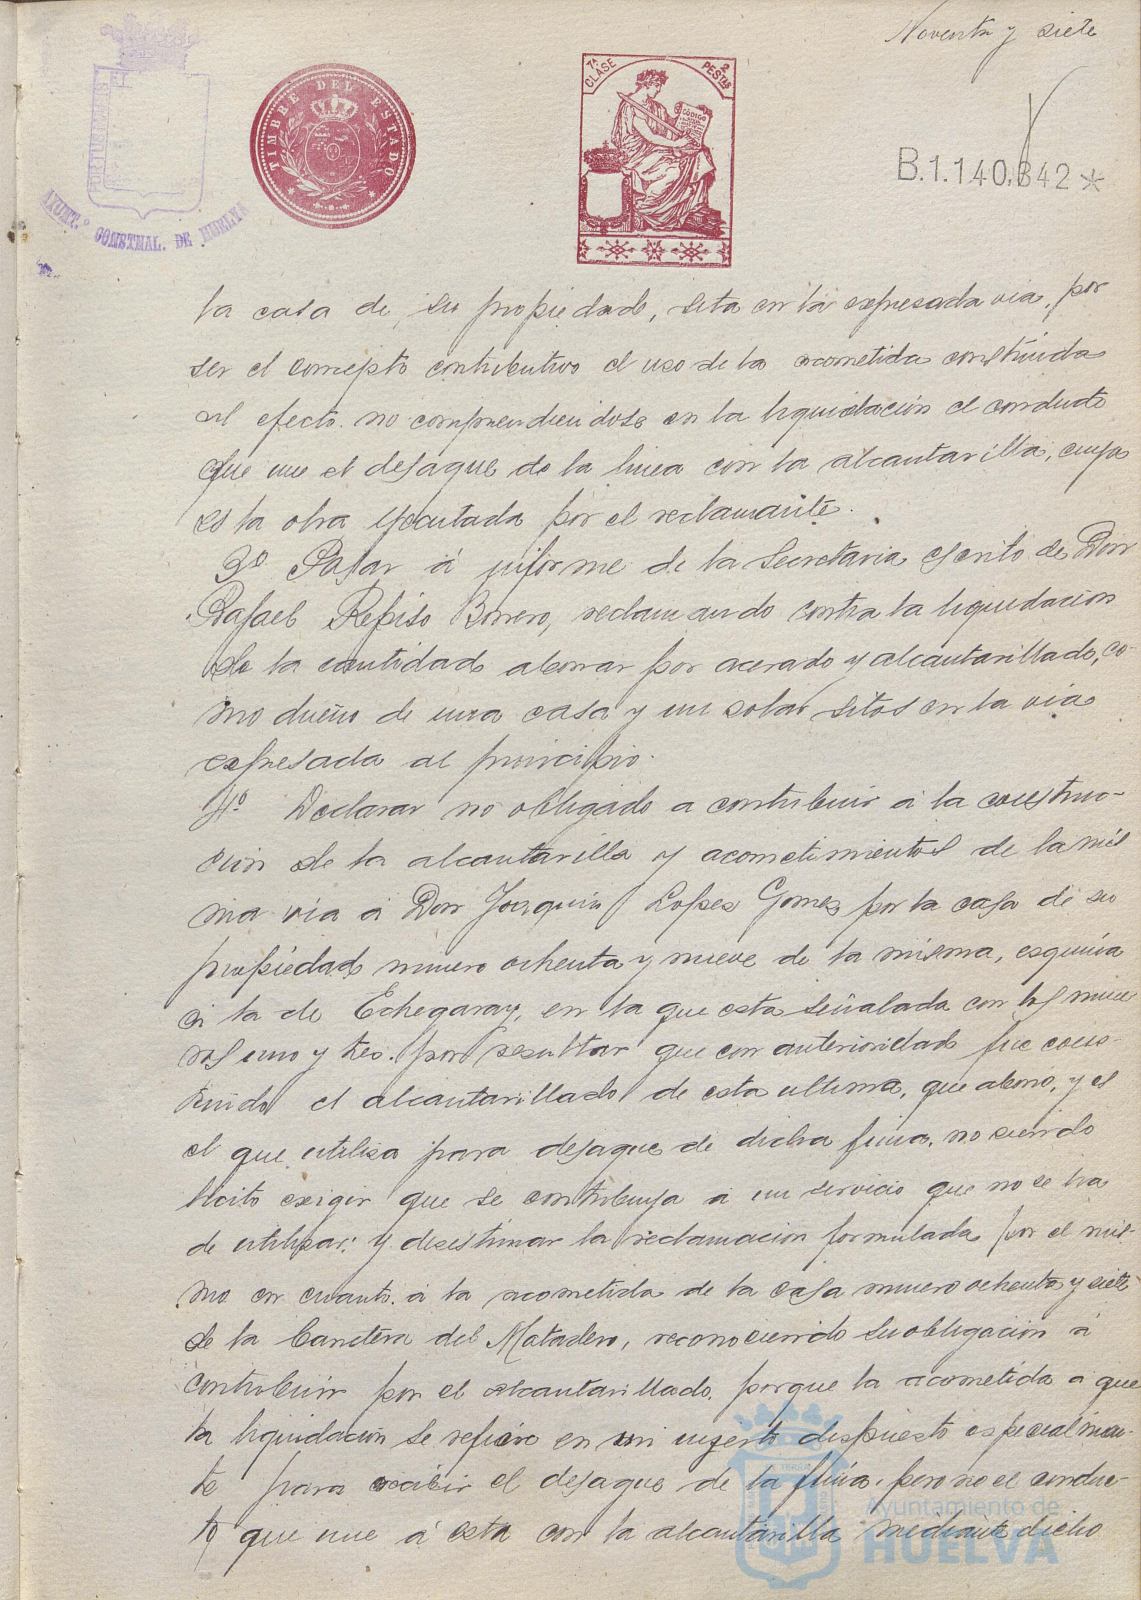 Noventa y siete
TIMBRE DEL ESTADO
7ª CLASE
2 PESTAS
CÓDIGO
B.1.140,842 *
AYUNT.º CONSTNAL. DE HUELVA
la casa de su propiedad, sita en la expresada via, por
ser el concepto contributivo el uso de la acometida construida
al efecto no comprendiendose en la liquidación el conducto
que une el desague de la linea con la alcantarilla, cuya
es la obra ejecutada por el reclamante.
3º Pasar á informe de la Secretaria escrito de Don
Rafael Repiso Borrero, reclamando contra la liquidacion
de la cantidad abonar por acerado y alcantarillado, co-
mo dueño de una casa y un solar sitos en la via
expresada al principio.
4º Declarar no obligado a contribuir á la construc-
cion de la alcantarilla y acometimientos de la mis
ma via á Don Joaquin Lopez Gomez por la casa de su
propiedad numero ochenta y nueve de la misma, esquina
á la de Echegaray, en la que esta señalada con los nume
ros uno y tres. por resultar que con anterioridad fue cons-
truido el alcantarillado de esta ultima, que abonó, y es
el que utiliza para desague de dicha finca, no siendo
licito exigir que se contribuya á un servicio que no se ha
de utilizar; y desestimar la reclamacion formulada por el mis-
mo en cuanto á la acometida de la casa numero ochenta y siete
de la Carretera del Matadero, reconociendo su obligacion á
contribuir por el alcantarillado, porque la acometida á que
la liquidacion se refiere en un ingerto dispuesto especialmen-
te para recibir el desague de la finca, pero no el conduc-
to que une á esta con la alcantarilla mediante dicho
Ayuntamiento de
HUELVA